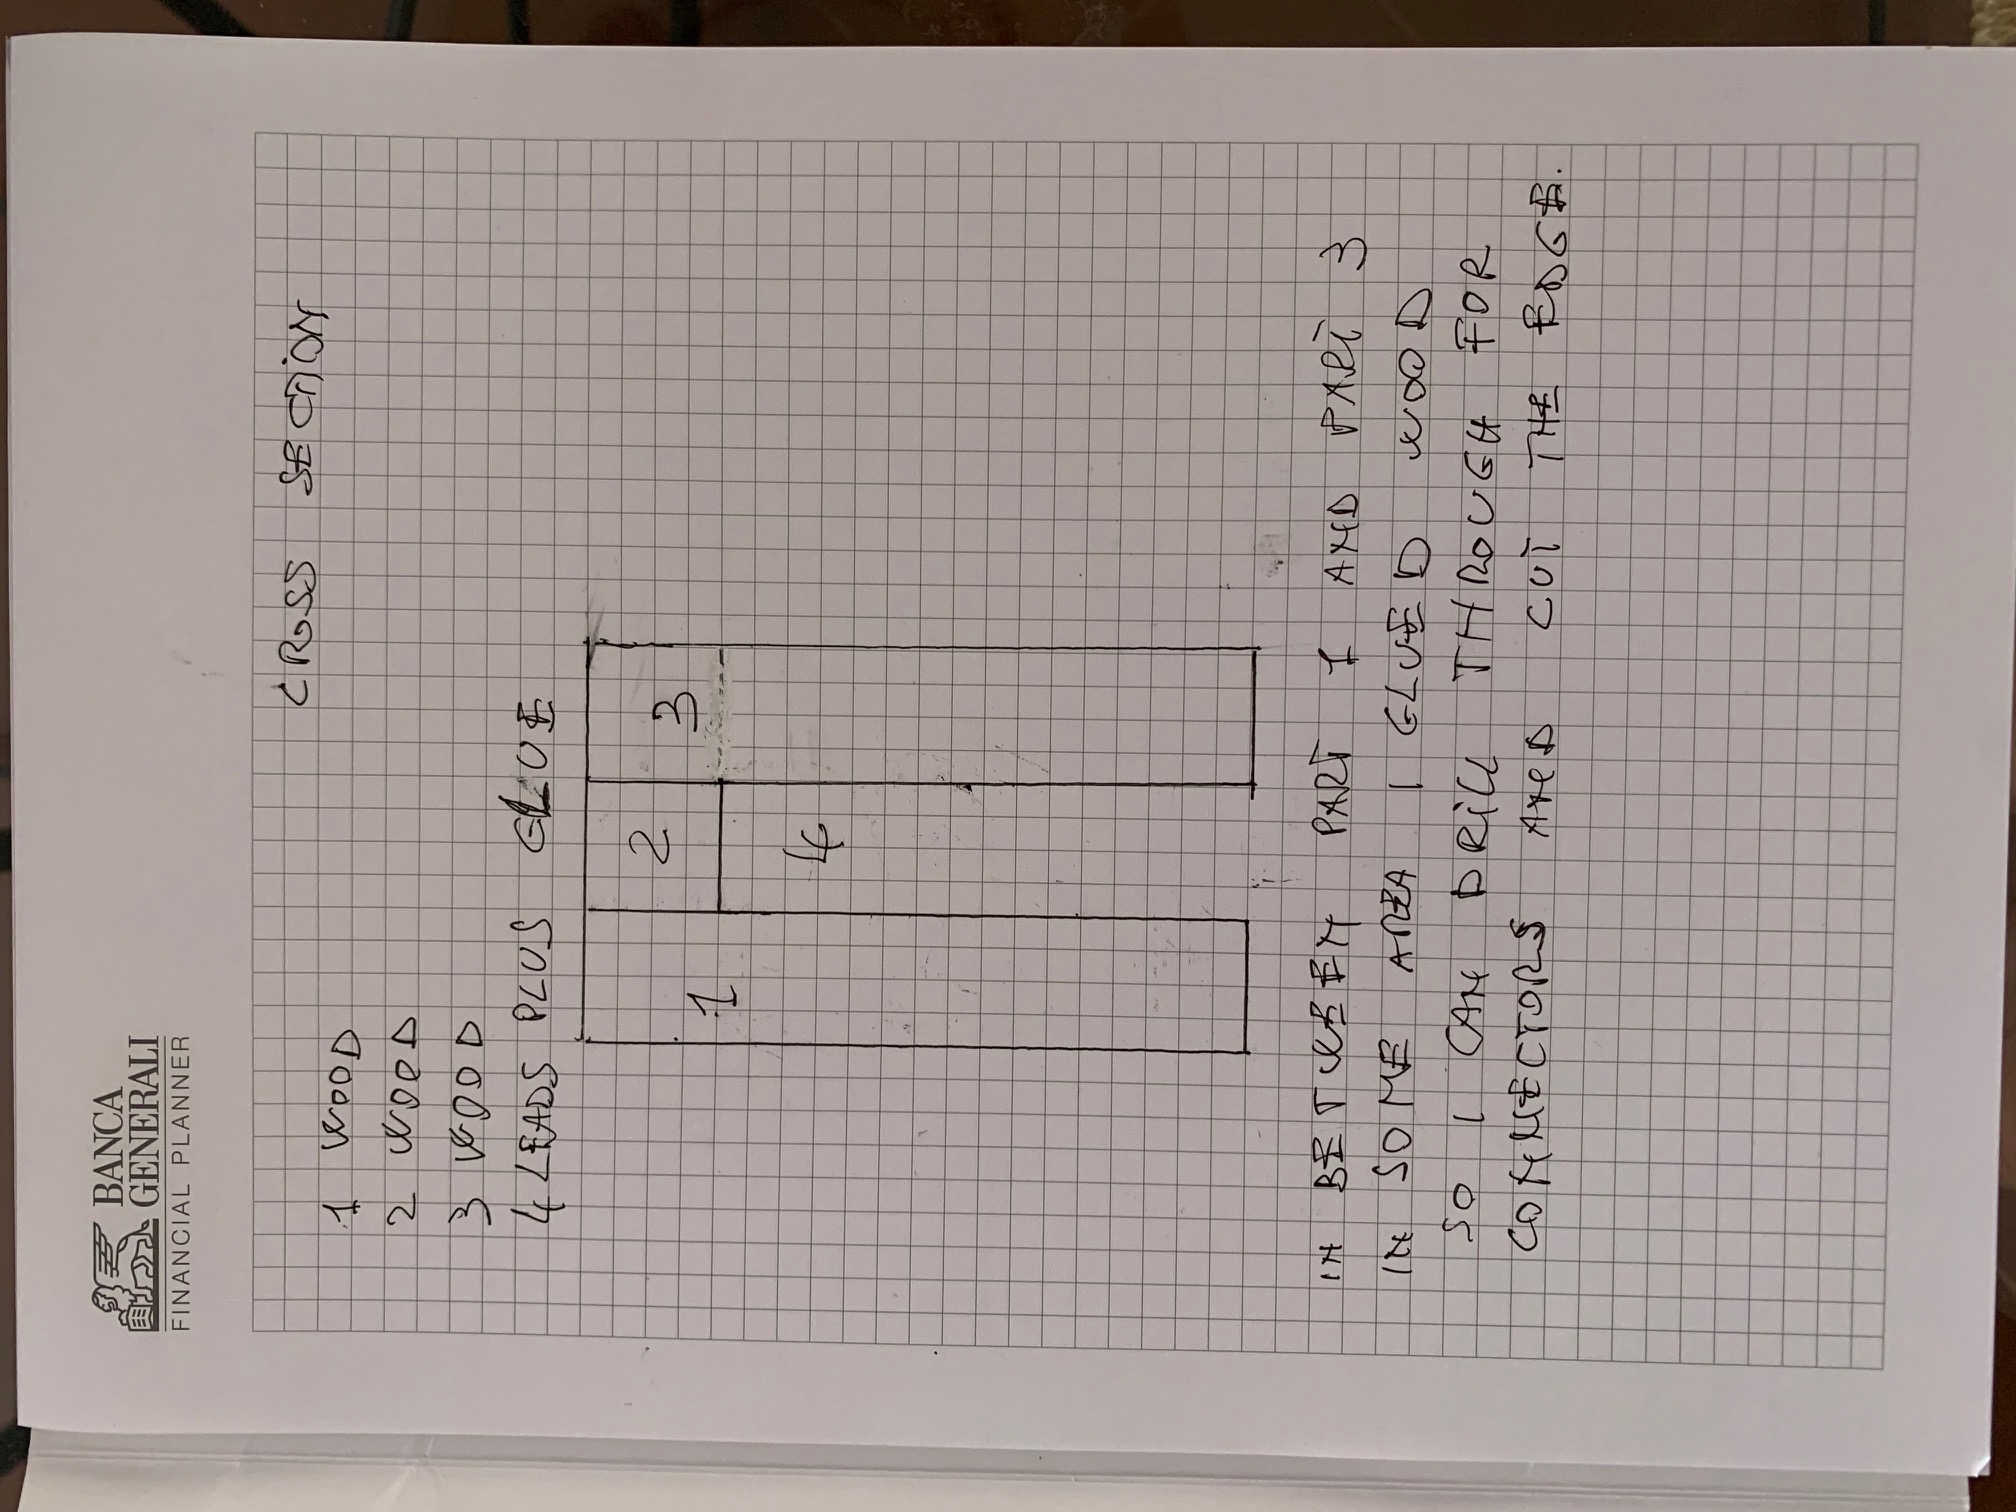 BANCA
GENERALI
FINANCIAL PLANNER
CROSS SECTION
1 WOOD
2 WOOD
3 WOOD
4 LEADS PLUS GLUE
1
2
3
4
IN BETWEEN PART 1 AND PART 3
IN SOME AREA I GLUED WOOD
SO I CAN DRILL THROUGH FOR
CONNECTORS AND CUT THE EDGE.